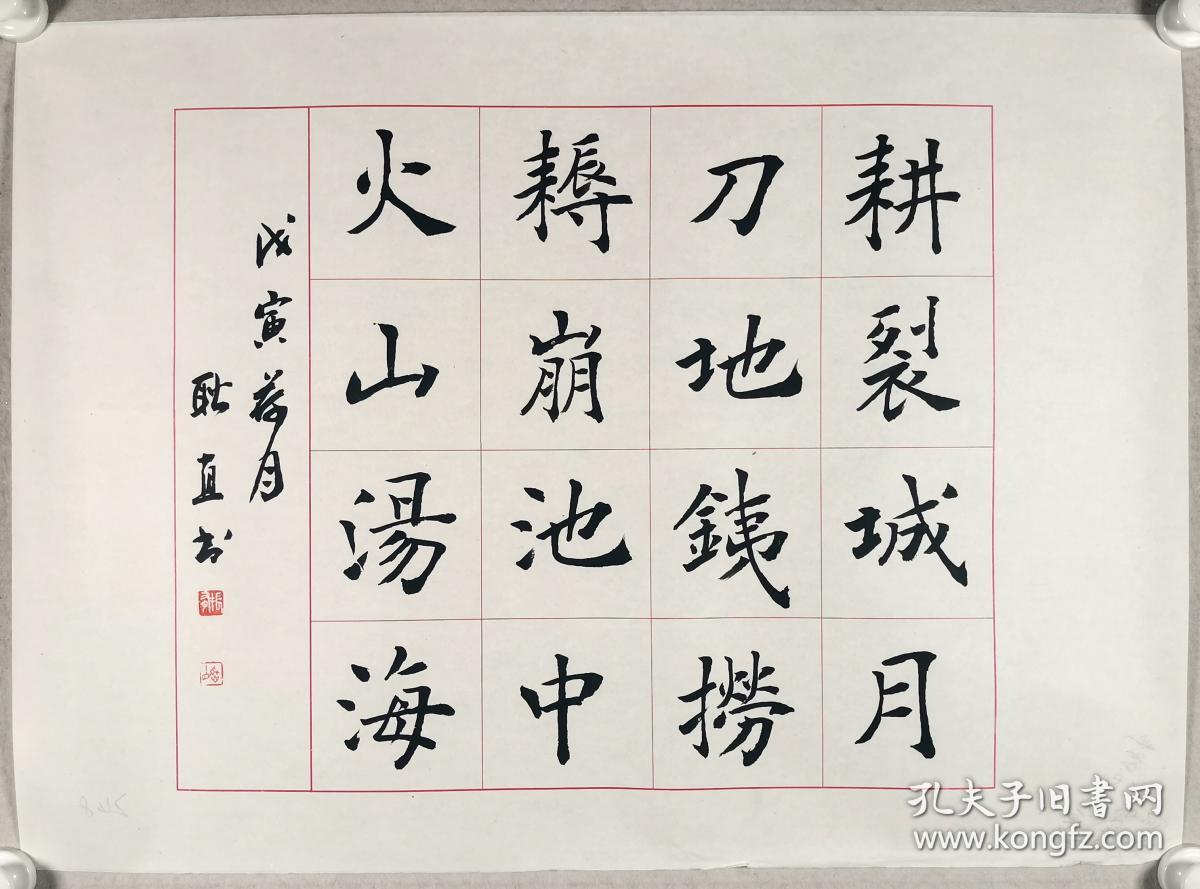 火耨刀耕
山崩地裂
湯池銕城
海中撈月
戊寅荷月
耿直书
孔夫子旧書网
www.kongfz.com